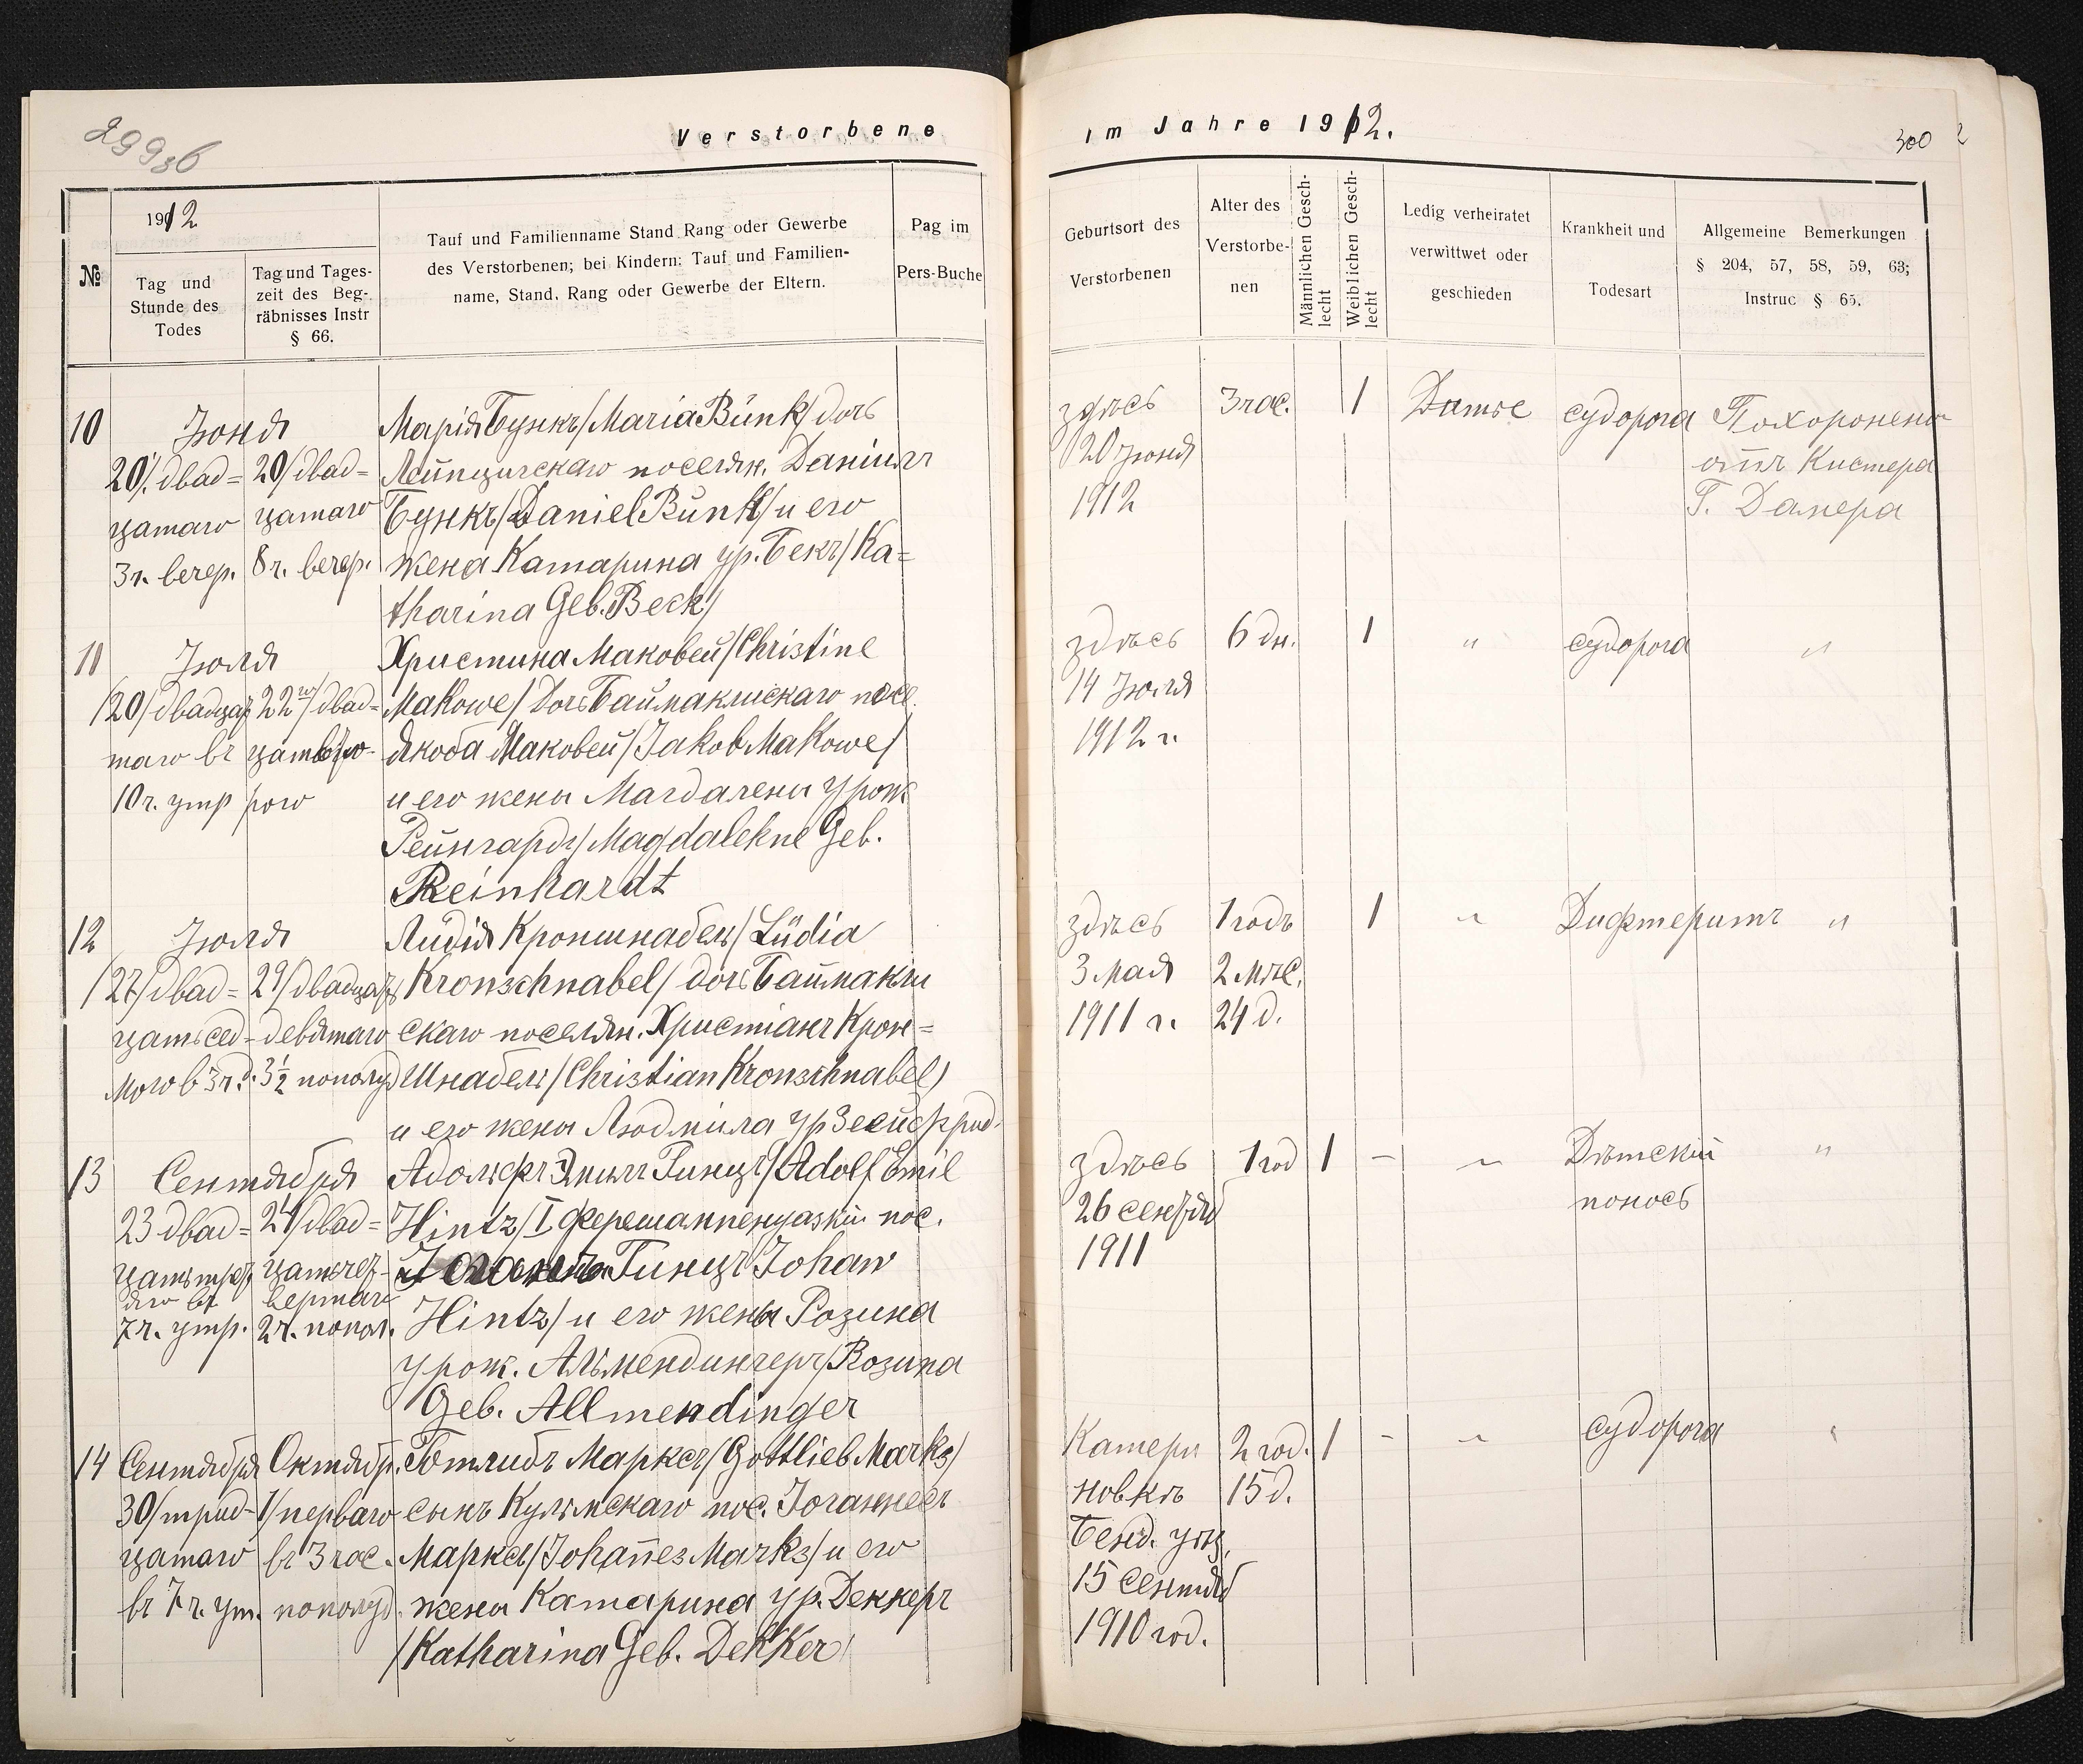 299 36
Verstorbene
im Jahre 1912.
300
№
1912
Tag und
Stunde des
Todes
Tag und Tages-
zeit des Beg-
räbnisses Instr
§ 66.
Tauf und Familienname Stand Rang oder Gewerbe
des Verstorbenen; bei Kindern: Tauf und Familien-
name, Stand, Rang oder Gewerbe der Eltern.
Pag im
Pers-Buche
Geburtsort des
Verstorbenen
Alter des
Verstorbe-
nen
Männlichen Gesch-
lecht
Weiblichen Gesch-
lecht
Ledig verheiratet
verwittwet oder
geschieden
Krankheit und
Todesart
Allgemeine Bemerkungen
§ 204, 57, 58, 59, 63;
Instruc § 65.
10
Іюня
20/ двад=
цатаго
3 ч. вечер.
20/двад=
цатаго
8 ч. вечер.
Марія Бункъ/Maria Bünk/дочь
Лейпцигскаго поселян. Даніилъ
Бункъ/Daniel Bünk/и его
жена Катарина ур. Бекъ/Ka=
tharina Geb. Beck/
здѣсь
20 Іюня
1912
3 час.
1
Дитяе
судорога
Похоронены
отъ Кистера
Г. Далера
11
Іюля
/20/двадца
таго въ
10 ч. утр
22го/двад=
рого
Христина Маковей/Christine
Makowe/Дочь Баймаклискаго посе.
Якоба Маковей/Jakob Makowe/
и его жены Магдалены урож
Рейнгардъ/Magdalekne Geb.
Reinhardt
здѣсь
14 Іюля
1912 г.
6 дн.
1
"
судорога
"
12
Іюля
/27/двад=
цать сед-
мого в 3 ч.
29/двадцать
девятаго
3½ пополуд
Лидія Кроншнабель/Lüdia
Kronschnabel/ дочь Баймакли
скаго поселян. Христіанъ Крон=
Шнабель/Christian Kronschnabel/
и его жены Людмила ур Зейфрид.
здѣсь
3 Мая
1911 г.
1 годъ
2 мѣс.
24 д.
1
"
Дифтеритъ
"
13
Сентября
23 двад=
цать тре
яго въ
7 ч. утр.
24/двад=
цать чет-
вертаго
2 ч. попол.
Адольфъ Эмилъ Гинцъ/Adolf Emil
Hintz/ I Ферешампенуазкій пос.
Іоганъ Гинцъ Johan
Hintz/ и его жены Розина
урож. Альмендингеръ/Rozina
Geb. Allmendinger
здѣсь
26 сентяб
1911
1 год
1
–
"
Дѣтскій
поносъ
"
14
Сентября
30/трид-
цатаго
въ 7 ч. ут.
Октябр.
1/перваго
въ 3 час.
пополуд.
Готлибъ Марксъ/Gottlieb Marks/
сынъ Кульмскаго пос. Іоганнесъ
Маркса/Johañes Marks/ и его
жены Катарина ур. Деккеръ
/Katharina Geb. Dekker/
Катери
новкѣ
Бенд. уѣз.
15 сентяб
1910 год.
2 год.
15 д.
1
-
"
судорога
"